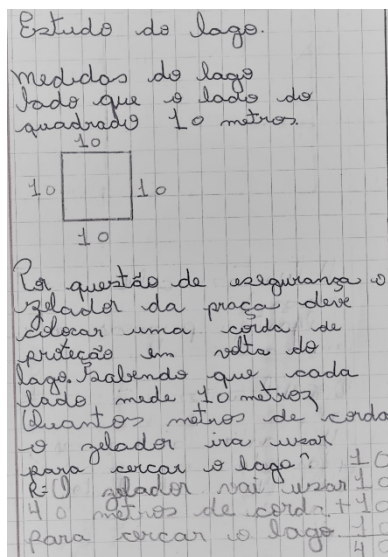 Estudo do lago.
medidas do lago
lado que o lado do
quadrado 10 metros.
10
10 10
10
Por questão de esegurança o
zelador da praça deve
colocar uma corda de
proteção em volta do
lago. Sabendo que cada
lado mede 10 metros,
Quantos metros de corda
o zelador ira usar
para cercar o lago? 10
R=O zelador vai usar 10
40 metros de corda. +10
para cercar o lago. 10
40